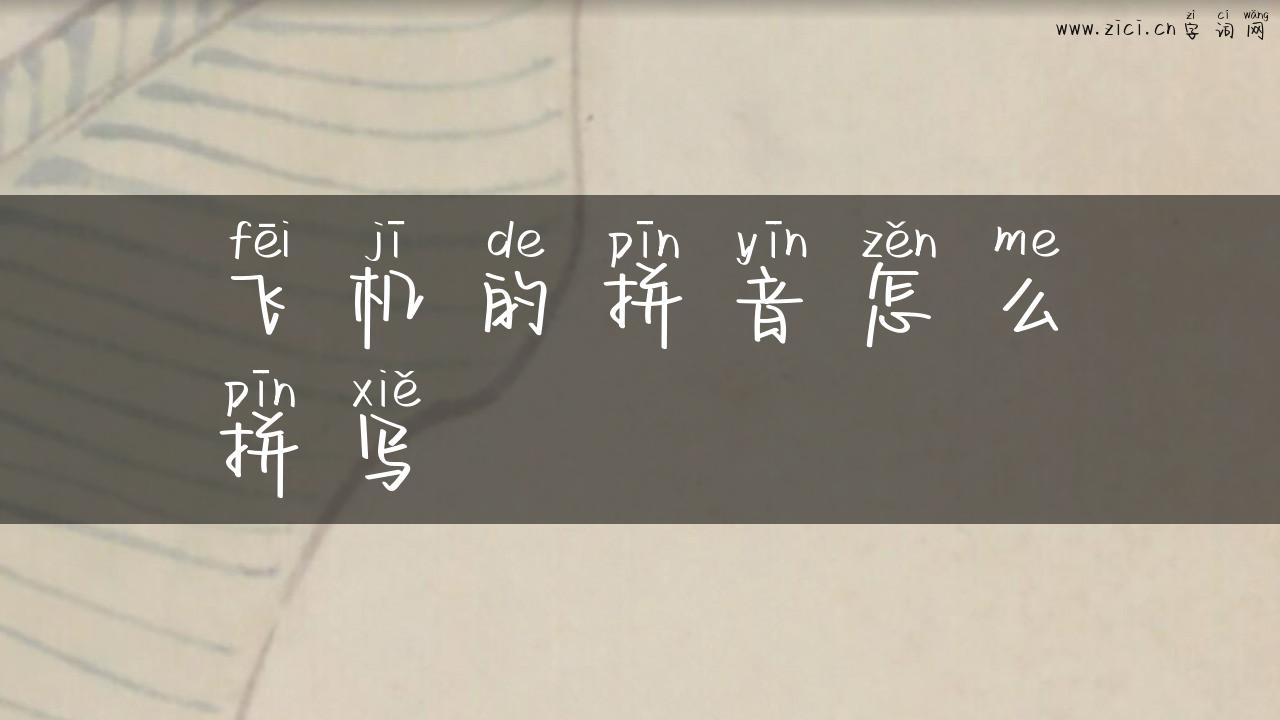 zì cí wǎng
www.zici.cn 字 词 网
fēi jī de pīn yīn zěn me
飞 机 的 拼 音 怎 么
pīn xiě
拼 写